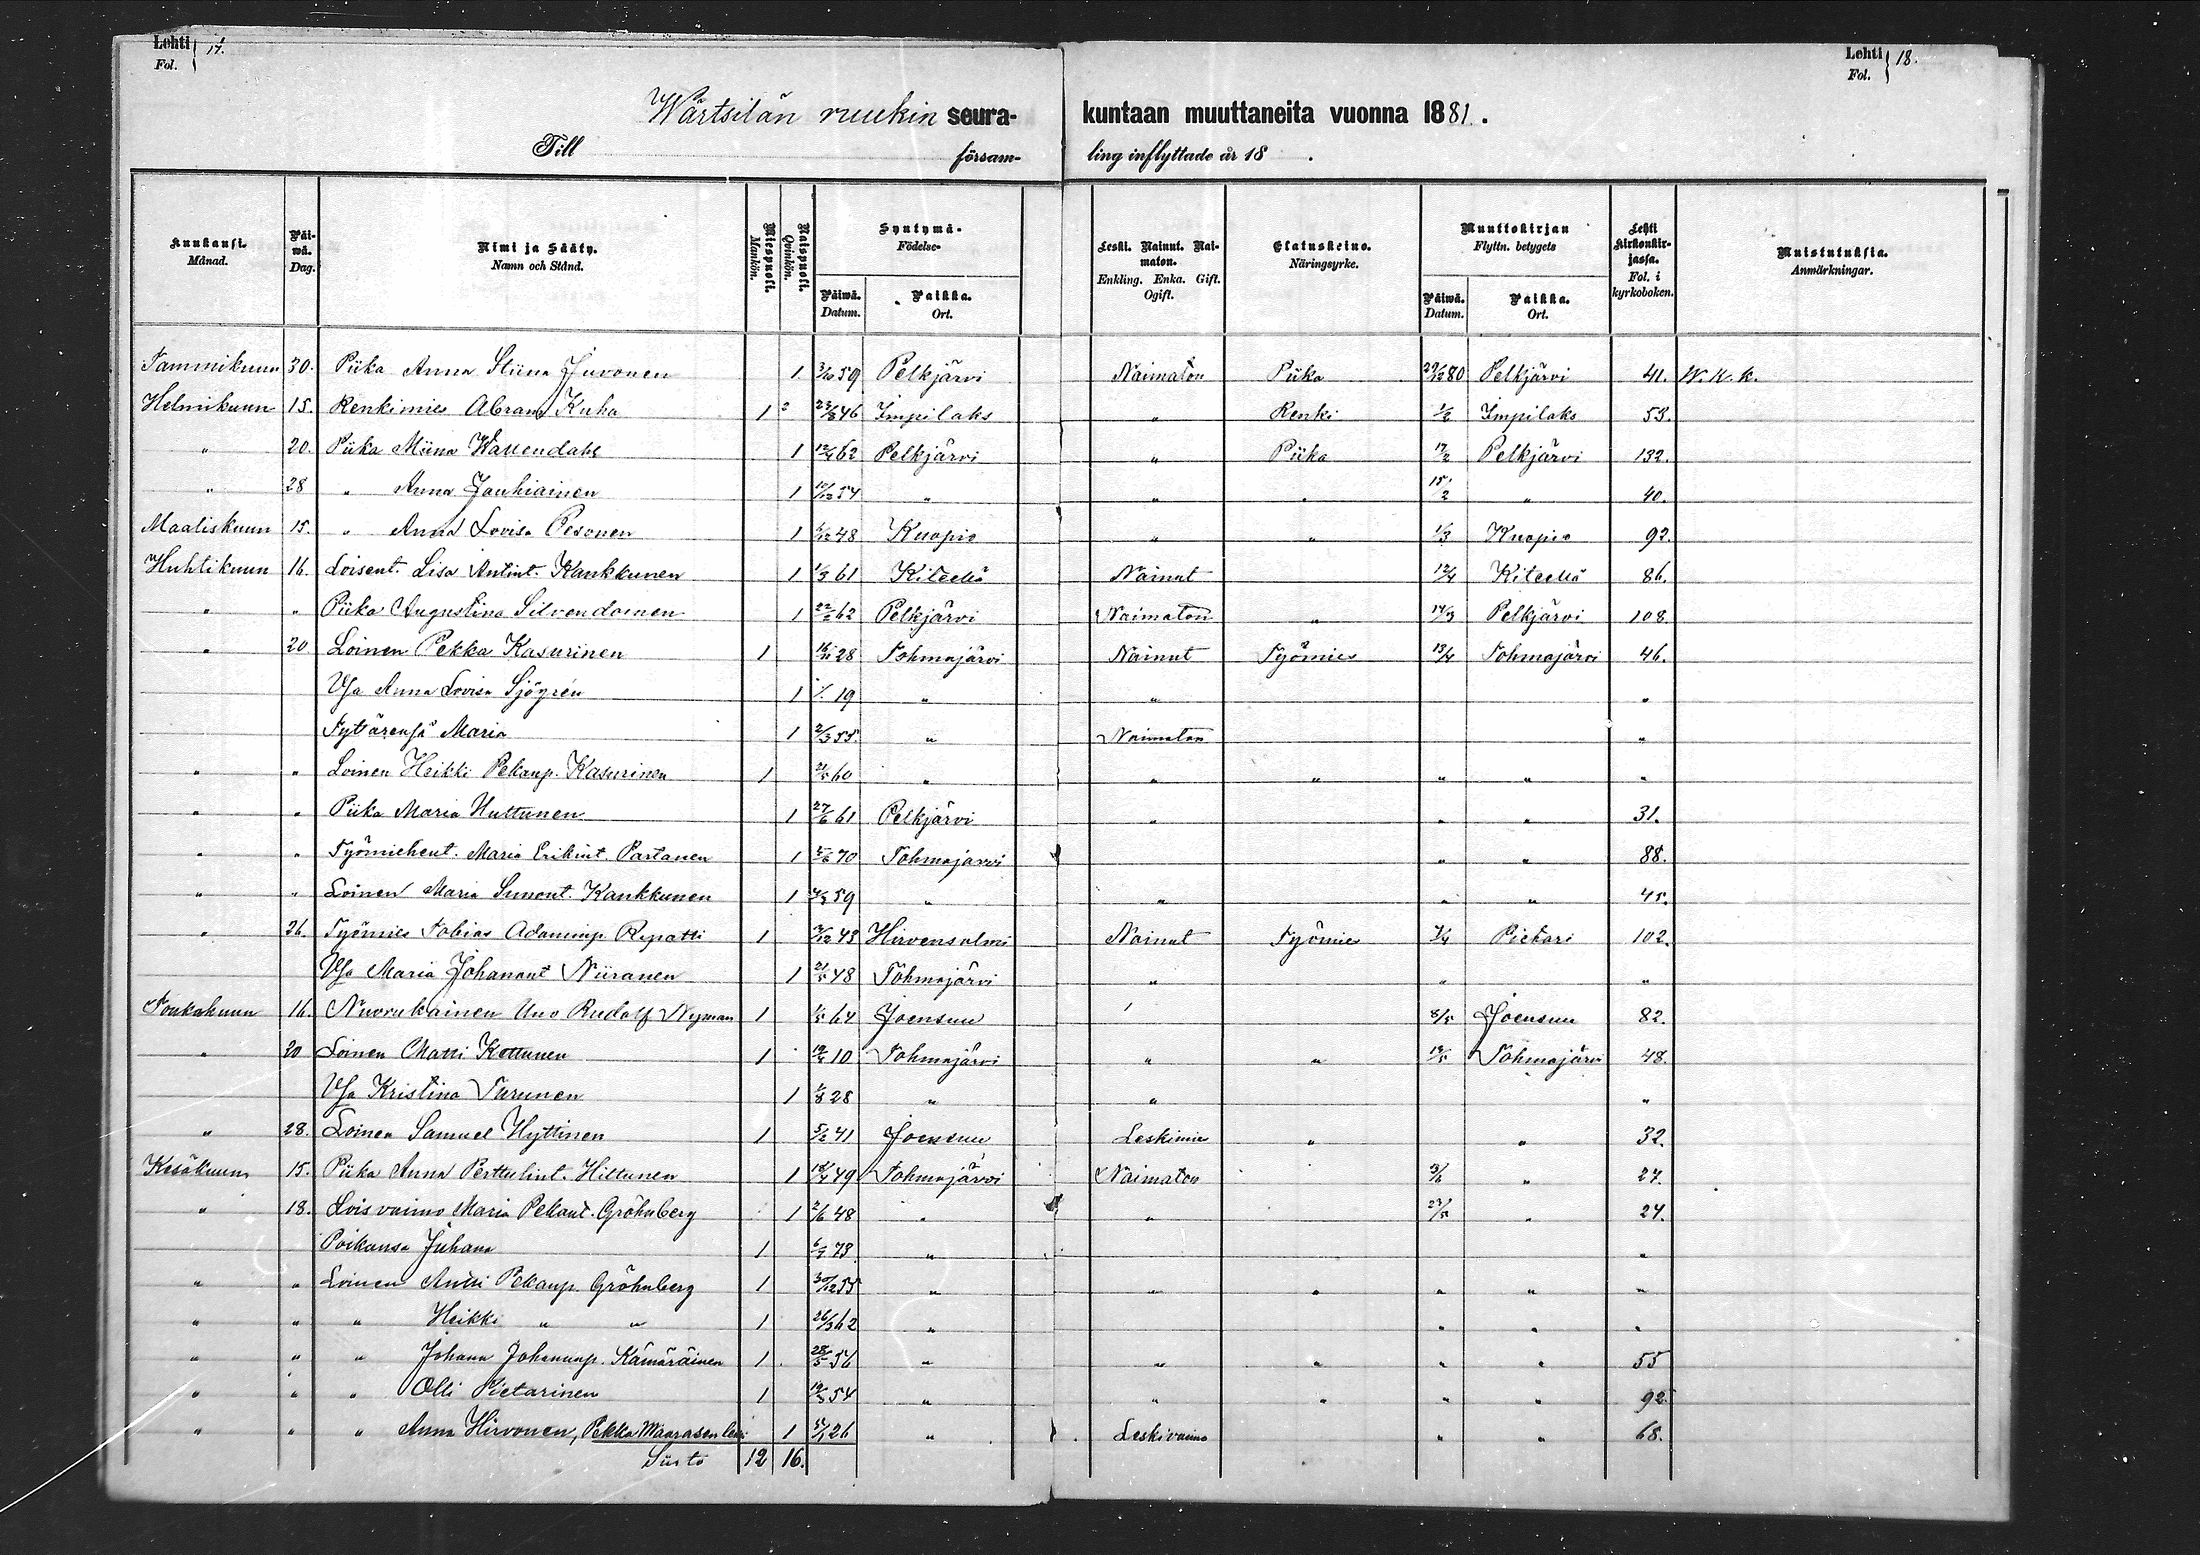 Lehti 17.
Fol.
Lehti 18.
Fol.
Wärtsilän ruukin seura-kuntaan muuttaneita vuonna 1881.
Till församling inflyttade år 18 .
Kuukausi. Månad. Päiwä. Dag. Nimi ja Sääty. Namn och Stånd. Miespuoli. Mankön. Naispuoli. Qvinkön. Syntymä- Födelse- Päiwä. Datum. Paikka. Ort. Leski. Nainut. Naimaton. Enkling. Enka. Gift. Ogift. Elatuskeino. Näringsyrke. Muuttokirjan Flyttn. betygets Päiwä. Datum. Paikka. Ort. Lehti kirkonkirjassa. Fol. i kyrkoboken. Muistutuksia. Anmärkningar.
Tammikuun 30. Piika Anna Stiina Juvonen 1 3/10 59 Pelkjärvi Naimaton Piika 29/12 80 Pelkjärvi 41. W. k. k.
Helmikuun 15. Renkimies Abram Kuha 1 2 23/8 46 Impilaks " Renki 1/2 Impilaks 53.
" 20. Piika Miina Wallendahl 1 12/4 62 Pelkjärvi " Piika 17/2 Pelkjärvi 132.
" 28 " Anna Jauhiainen 1 17/12 54 " " " 15/2 " 40.
Maaliskuun 15. " Anna Lovisa Pesonen 1 6/12 48 Kuopio " " 1/3 Kuopio 92.
Huhtikuun 16. Loisent. Lisa Antint. Kankkunen 1 1/3 61 Kiteellä Nainut 12/4 Kiteellä 86.
" " Piika Augustina Silvendoinen 1 22/2 62 Pelkjärvi Naimaton " 14/3 Pelkjärvi 108.
" 20 Loinen Pekka Kasurinen 1 16/11 28 Tohmajärvi Nainut Työmies 13/4 Tohmajärvi 46.
Wsa Anna Lovisa Sjögrén 1 19 " " "
Tytärensä Maria 1 2/3 55. " Naimaton "
" " Loinen Heikki Pekanp. Kasurinen 1 21/5 60 " " " " " "
" " Piika Maria Huttunen 1 27/6 61 Pelkjärvi " " " 31.
" " Työmiehent. Maria Erikint. Partanen 1 70 Tohmajärvi " " 88.
" " Loinen Maria Simont. Kankkunen 1 59 " " " " 45.
" 26. Työmies Tobias Adaminp. Repatti 1 43 Hirvensalmi Nainut Työmies Pietari 102.
Wsa Maria Johanant Niiranen 1 21/5 48 Tohmajärvi " " "
Toukokuun 16. Nuorukainen Uno Rudolf Nyman 1 1/5 64 Joensuu 8/5 Joensuu 82.
" 20 Loinen Matti Kettunen 1 10 Tohmajärvi " " Tohmajärvi 48.
Wsa Kristina Turunen 1 1/8 28 " " "
" 28. Loinen Samuel Hyttinen 1 5/2 41 Joensuu Leskimies " " 32.
Kesäkuun 15. Piika Anna Perttulint. Hiltunen 1 18/4 49 Tohmajärvi Naimaton 3/6 " 27.
" 18. Loisvaimo Maria Pekant. Gröhnberg 1 2/6 48 " " 23/5 " 24.
Poikansa Juhana 1 73 " "
" " Loinen Antti Pekanp. Gröhnberg 1 30/12 55 " " " " " "
" " " Heikki " " 1 26/3 62 " " " "
" " " Johann Johaninp. Kämäräinen 1 28/5 56 " " " " " 55
" " " Olli Pietarinen 1 54 " " " " " 92
" " " Anna Hirvonen, Pekka Maarasen leski 1 26 " Leskivaimo " " 68.
Siirto 12 16.